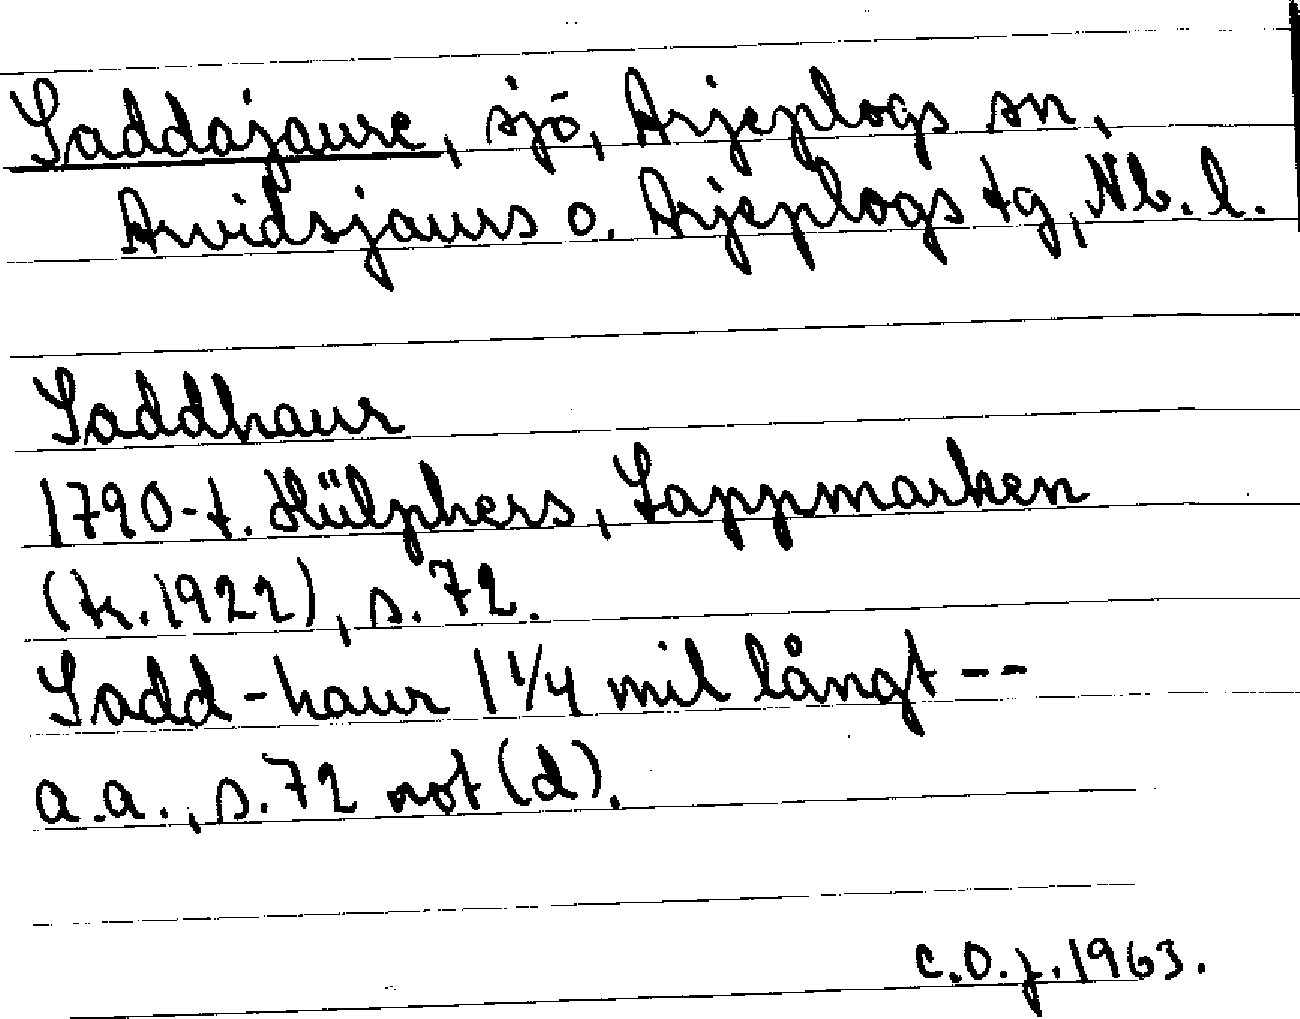 Saddajaure, sjö, Arjeplogs sn,
Arvidsjaurs o. Arjeplogs tg, Nb. l.
Saddhaur
1790-t. Hülphers, Lappmarken
(tr. 1922), s. 72.
Sadd-haur 1 1/4 mil långt --
a.a., s. 72 not (d).
C.O.J. 1963.